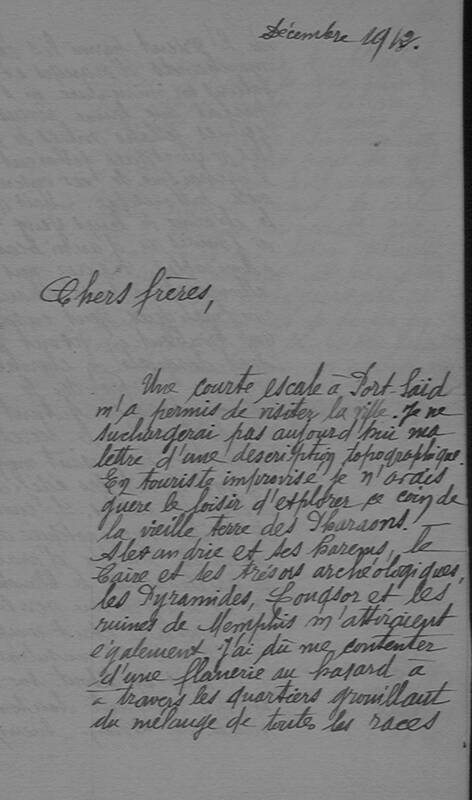 Décembre 1912.
Chers frères,
Une courte escale à Port Saïd
m'a permis de visiter la ville. Je ne
suchargerai pas aujourd'hui ma
lettre d'une description topographique.
En touriste improvisé je n'avais
guère le loisir d'explorer ce coin de
la vieille terre des Pharaons.
Alexandrie et ses harems, le
Caire et ses trésors archéologiques,
les Pyramides, Louqsor et les
ruines de Memphis m'attiraient
également. J'ai dû me contenter
d'une flanerie au hasard à
à travers les quartiers grouillant
du mélange de toutes les races